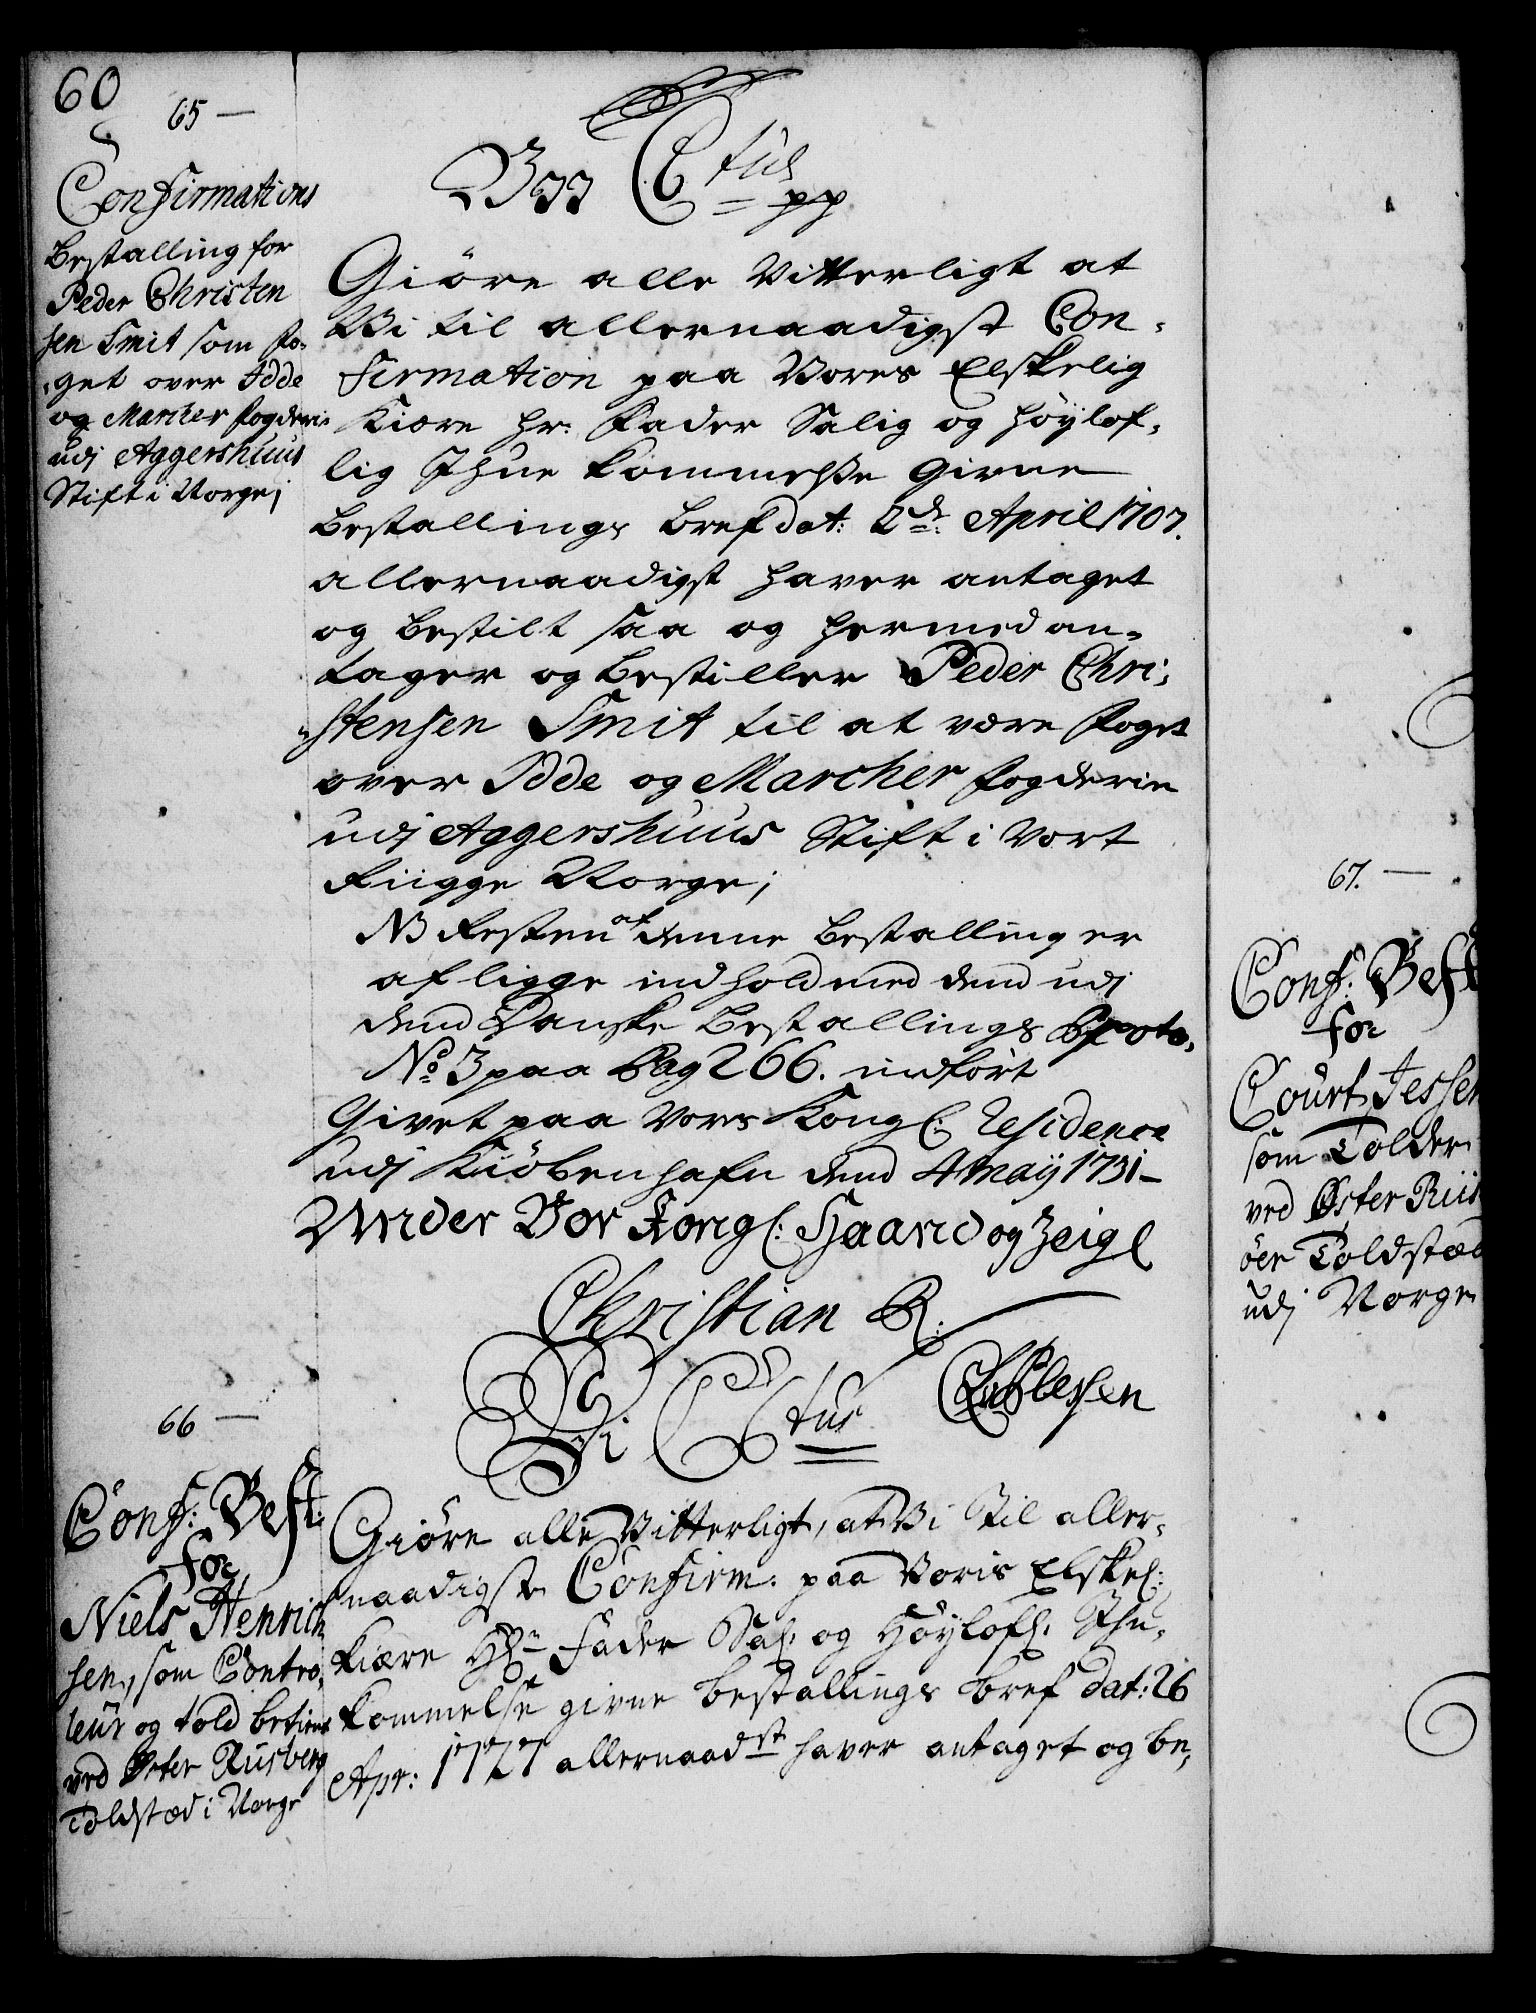 60
65 —
Confirmations
Bestalling for
Peder Christen
sen Smit som Fo-
get over Idde
og Marcher fogderie
udj Aggershuus
Stift i Norge;
Vii C 6tus
pp
Giöre alle Vitterligt at
Wi til allernaadigst Con-
firmation paa Vores Elskelig
Kiære Hr: Fader Salig og Höylof-
lig Ihue kommelse Givne
Bestallings Bref dat: 2d: April 1707.
allernaadigst haver antaget
og bestilt saa og hermed an-
tager og bestiller Peder Chri-
stensen Smit til at være Foget
over Idde og Marcher fogderie
udj Aggershuus Stift i Vort
Riigge Norge;
NB Resten af denne Bestalling er
af ligge indhold med dend udj
dend Danske Bestallings Proto-
No 3 paa Pag 266. indfört
Givet paa Vores Kongl: Residence
udj Kiöbenhafn dend 4 may 1731 —
Under Vor Kongl: Haand og Zeigl
Christian R:
CAvPlessen
66 —
Conf: Best:
for
Niels Henrich
sen, som Contro-
leur og told betient
ved Öster Riisberg
Toldstæd i Norge
Vi C 6tus
Giöre alle Vitterligt, at Vi til aller-
naadigste Confirm. paa Voris Elskel:
kiære Hrn Fader Sal: og Höylofl: Ihu-
kommelse givne bestallings bref dat: 26
Apr: 1727 allernaadst haver antaget og be-
67. —
Conf: Best
for
Court Jessen
som Tolder
ved Öster Riis
öer Toldstæd
udj Norge